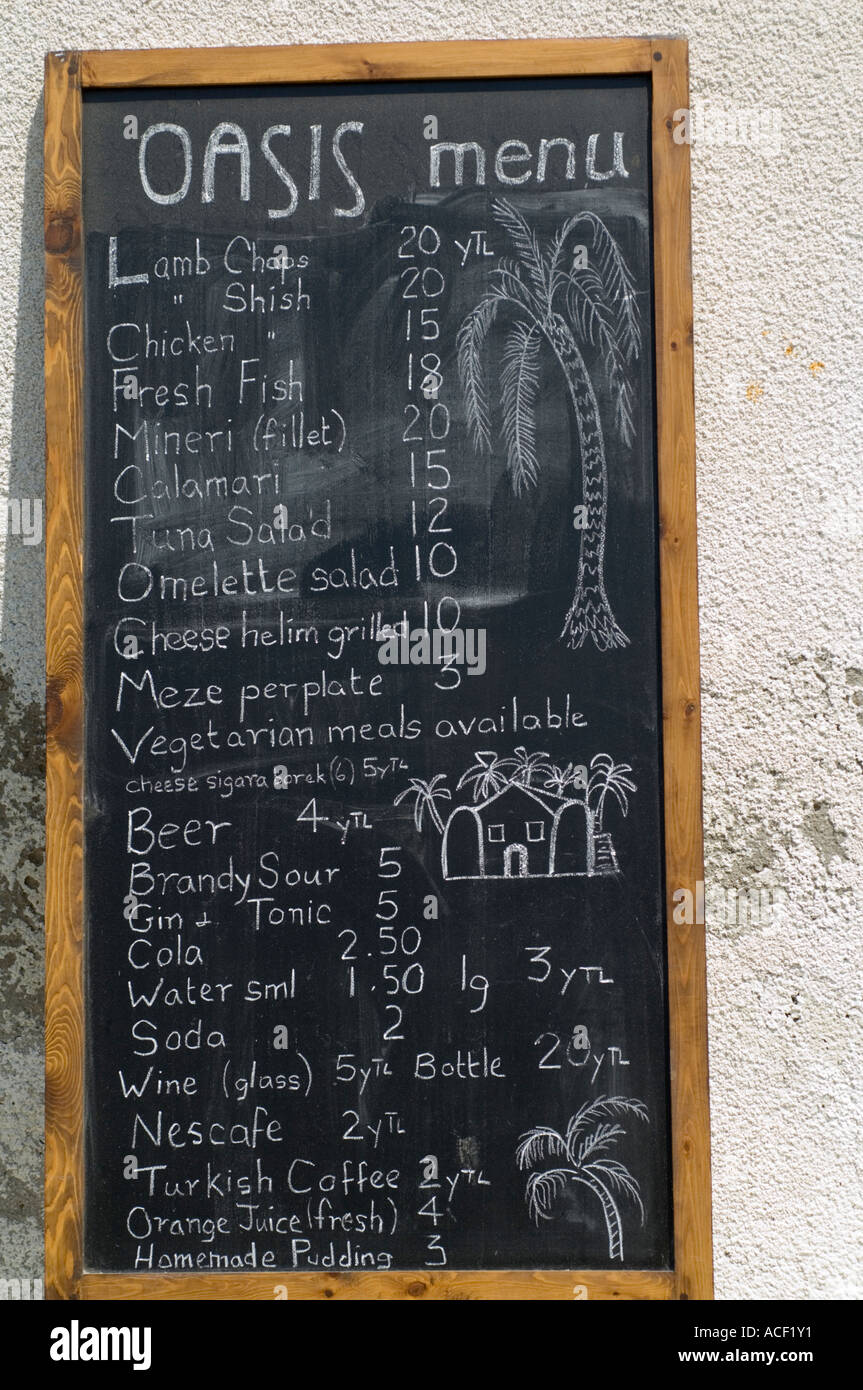 OASIS menu
Lamb Chops 20 YTL
" Shish 20
Chicken " 15
Fresh Fish 18
Mineri (fillet) 20
Calamari 15
Tuna Salad 12
Omelette salad 10
Cheese helim grilled 10
Meze per plate 3
Vegetarian meals available
cheese sigara borek (6) 5YTL
Beer 4 YTL
Brandy Sour 5
Gin + Tonic 5
Cola 2.50
Water sml 1.50 lg 3 YTL
Soda 2
Wine (glass) 5YTL Bottle 20YTL
Nescafe 2YTL
Turkish Coffee 2YTL
Orange Juice (fresh) 4
Homemade Pudding 3
alamy
Image ID: ACF1Y1
www.alamy.com